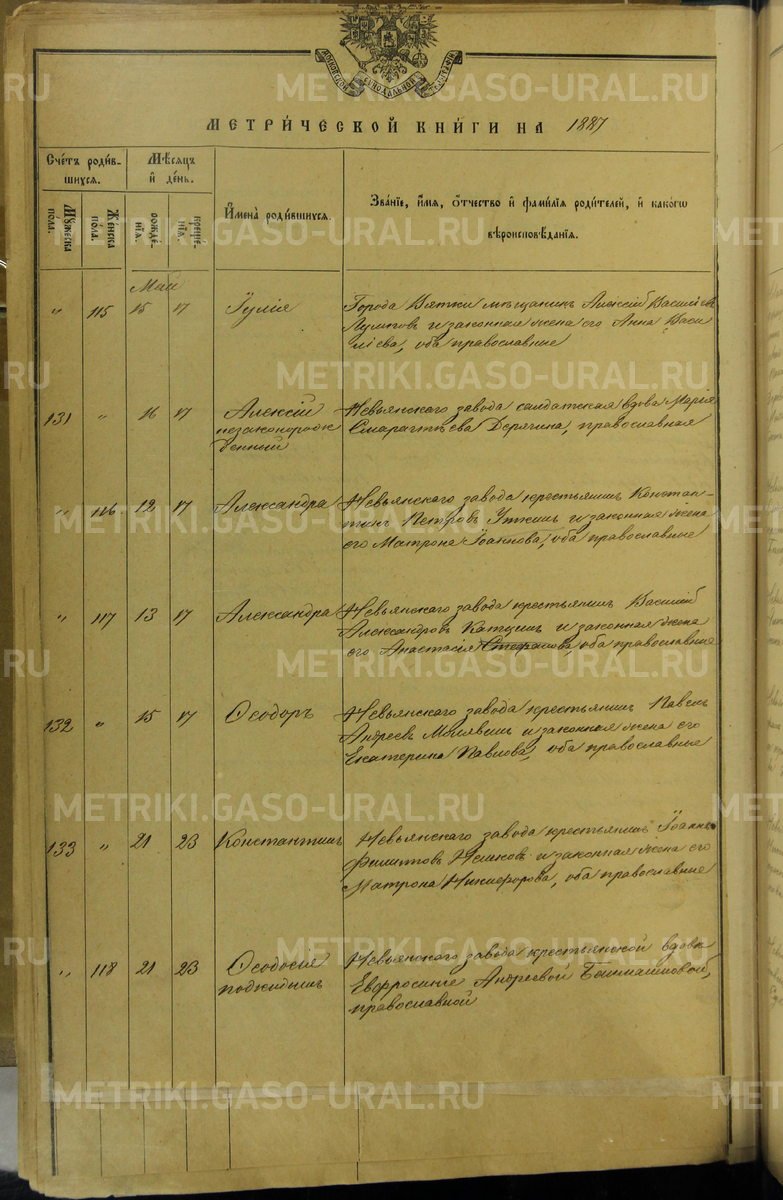 МОСКОВСКОЙ СѴНОДАЛЬНОЙ ТѴПОГРАФІИ
METRIKI.GASO-URAL.RU
МЕТРИ́ЧЕСКОЙ КНИ́ГИ НА 1887
Сче́тъ роди́в-
шихся.
Му́жеска
пола.
Же́нска
пола.
Мѣ́сяцъ
и́ де́нь.
рожде́-
нїѧ.
креще́-
нїѧ.
И҆мена̀ роди́вшихся.
Зва́нїе, и҆́мя, ѻ҆́тчество и҆ фами́лїя роди́телей, и҆ како́гѡ
вѣроисповѣ́данїя.
Май
" 115 15 17 Іулія Города Вятки мѣщанинъ Алексій Василіевъ
и законная жена его Анна Васи-
ліева, оба православные
131 " 16 17 Алексій Невьянскаго завода солдатская вдова Марія
незаконорож Смарагдѣева Дерягина, православная
денный
" 116. 12 17 Александра Невьянскаго завода крестьянинъ Констан-
тинъ Петровъ Уткинъ и законная жена
его Матрона Іоаннова, оба православные
" 117 13 17 Александра Невьянскаго завода крестьянинъ Василій
Александровъ и законная жена
его Анастасія Стефанова, оба православные
132 " 15 17 Ѳеодоръ Невьянскаго завода крестьянинъ Павелъ
Андреевъ и законная жена его
Екатерина Павлова, оба православные
133 " 21 23 Константинъ Невьянскаго завода крестьянинъ Іоаннъ
Филиповъ и законная жена его
Матрона Никифорова, оба православные
" 118 21 23 Ѳеодосія Невьянскаго завода крестьянской вдовѣ
подкидышъ Евфросиніе Андреевой Башмашновой,
православной